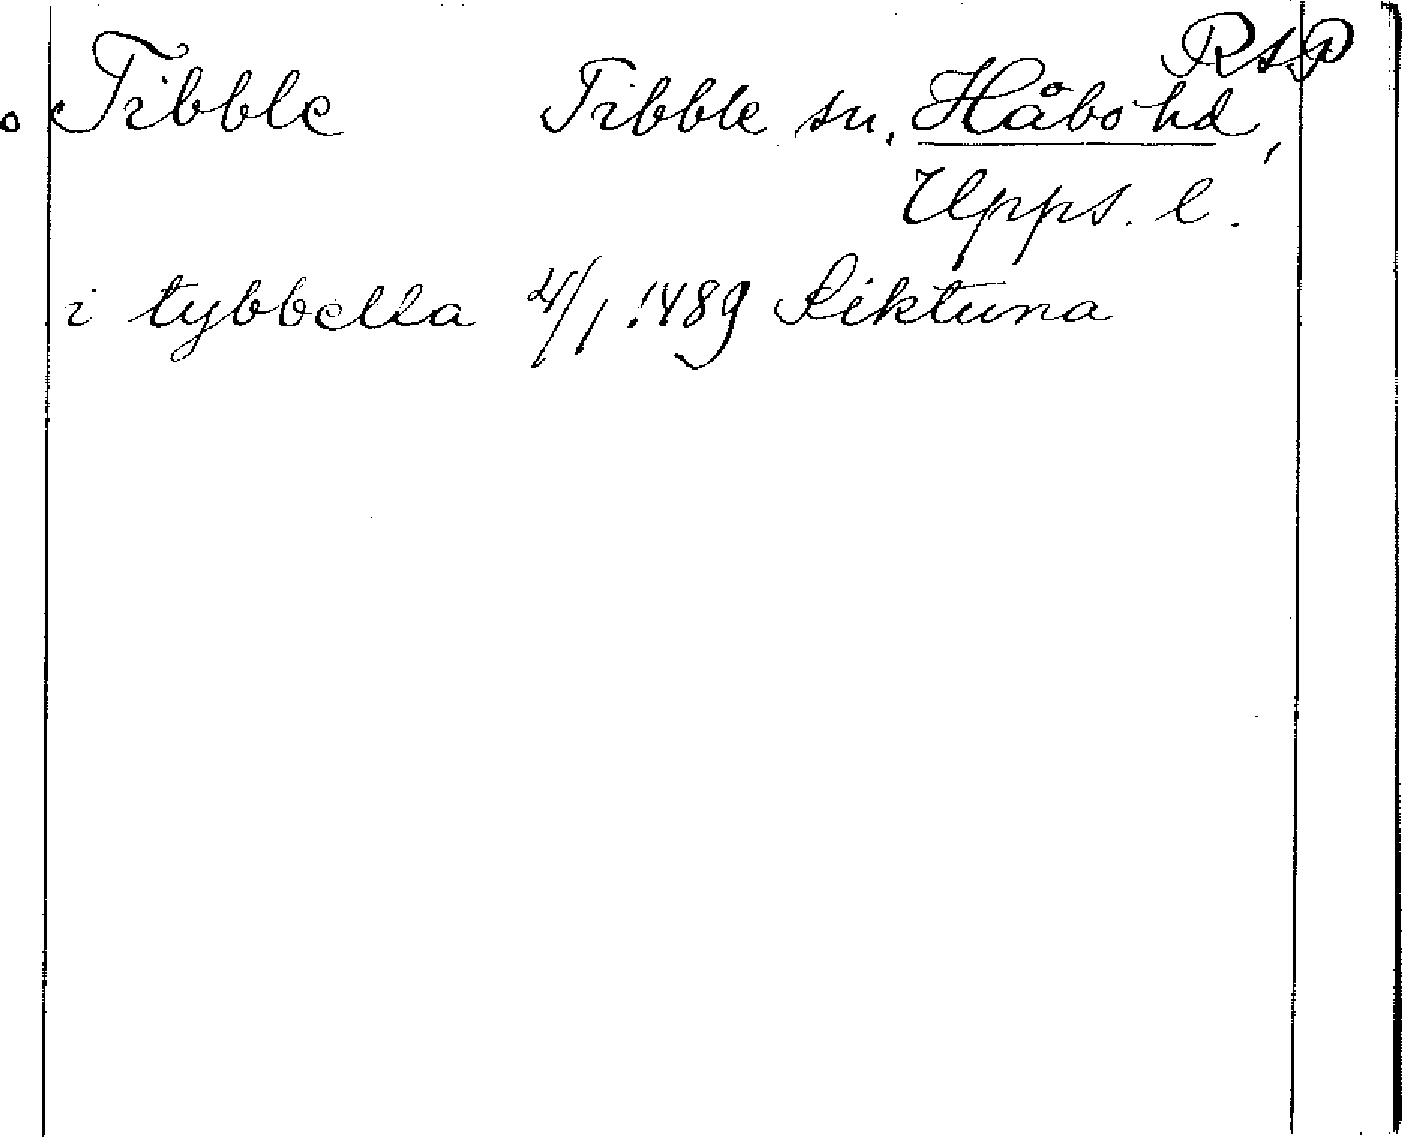 RsP
Tibble Tibble sn, Håbo hd,
Upps. l.
i tybbella 4/1 1489 Siktuna